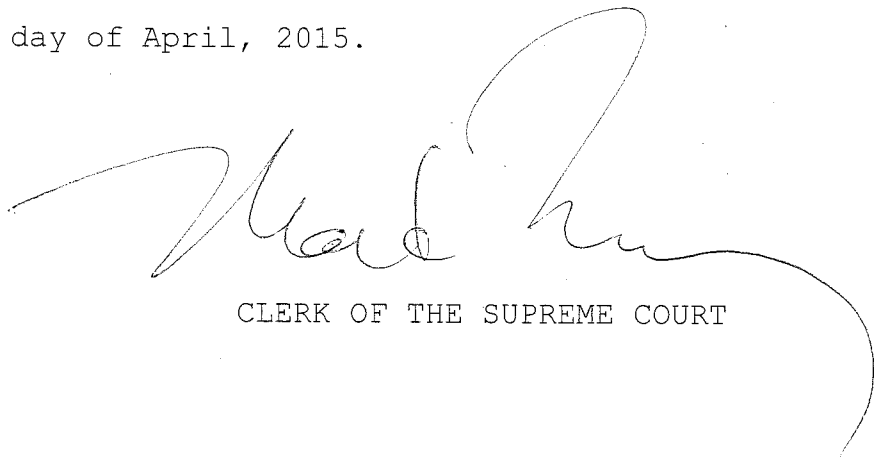 day of April, 2015.
CLERK OF THE SUPREME COURT